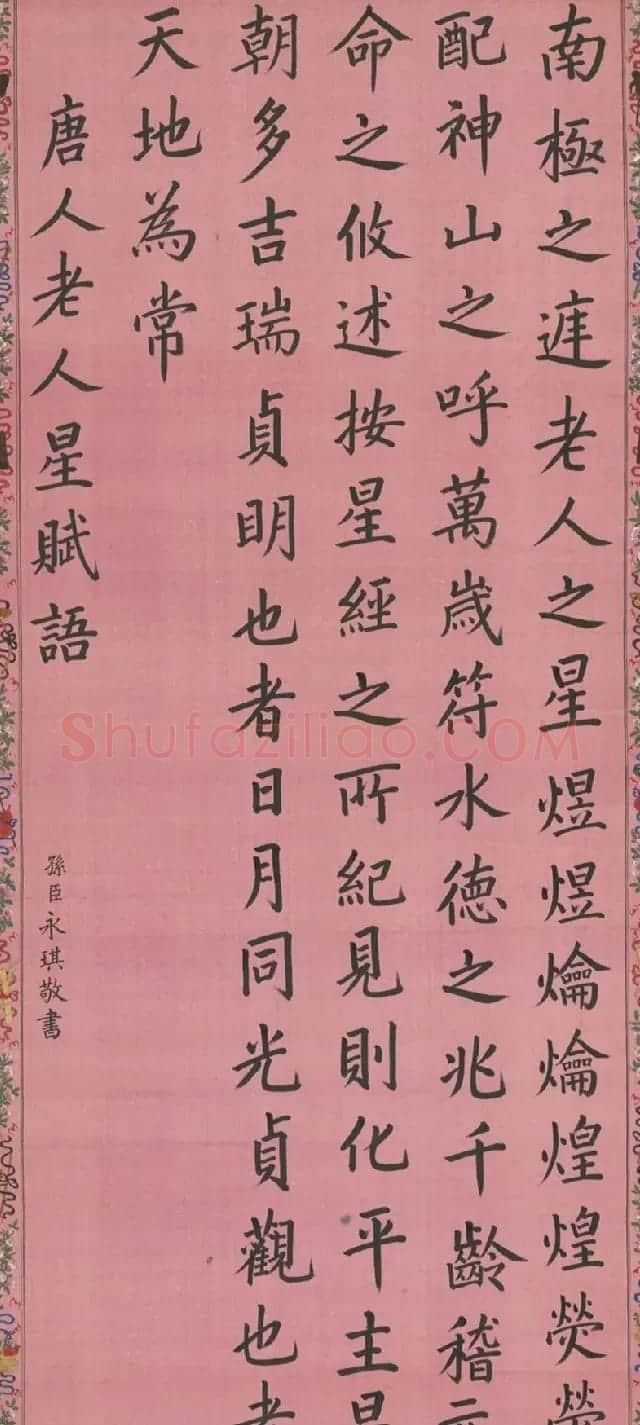 南極之涯老人之星煜煜爚爚煌煌熒
配神山之呼萬歲符水德之兆千齡稽
命之攸述按星經之所紀見則化平主
朝多吉瑞貞明也者日月同光貞觀也
天地為常
唐人老人星賦語
孫臣永琪敬書
Shufaziliao.COM